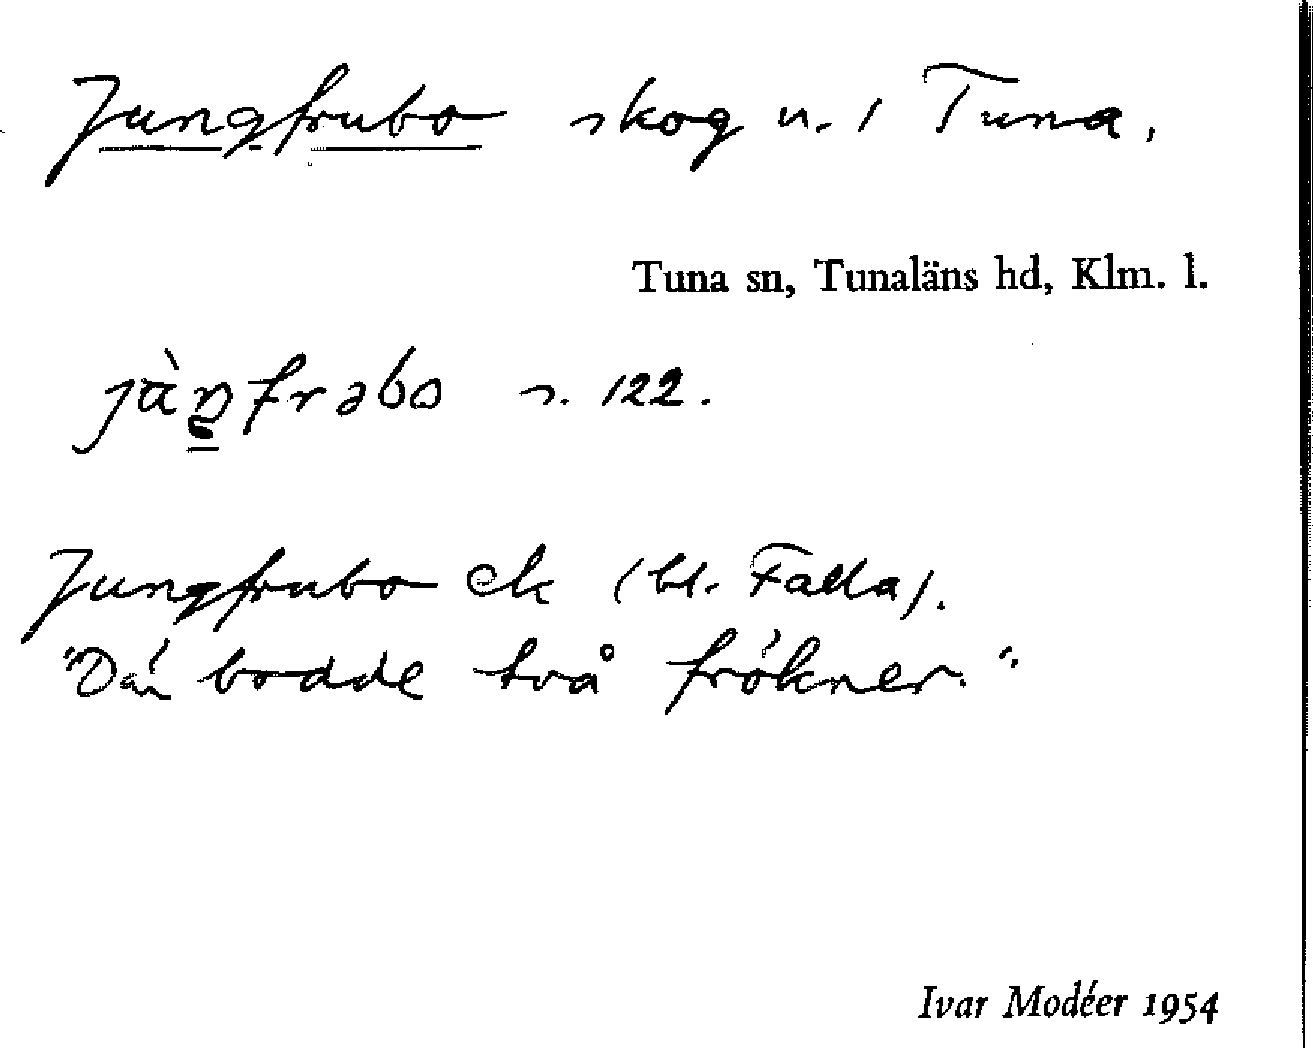 Jungfrubo skog u. / Tuna.
Tuna sn, Tunaläns hd, Klm. l.
s. 122.
Jungfrubo ek (bl. Falla).
"Där bodde två fröknер."
Ivar Modéer 1954